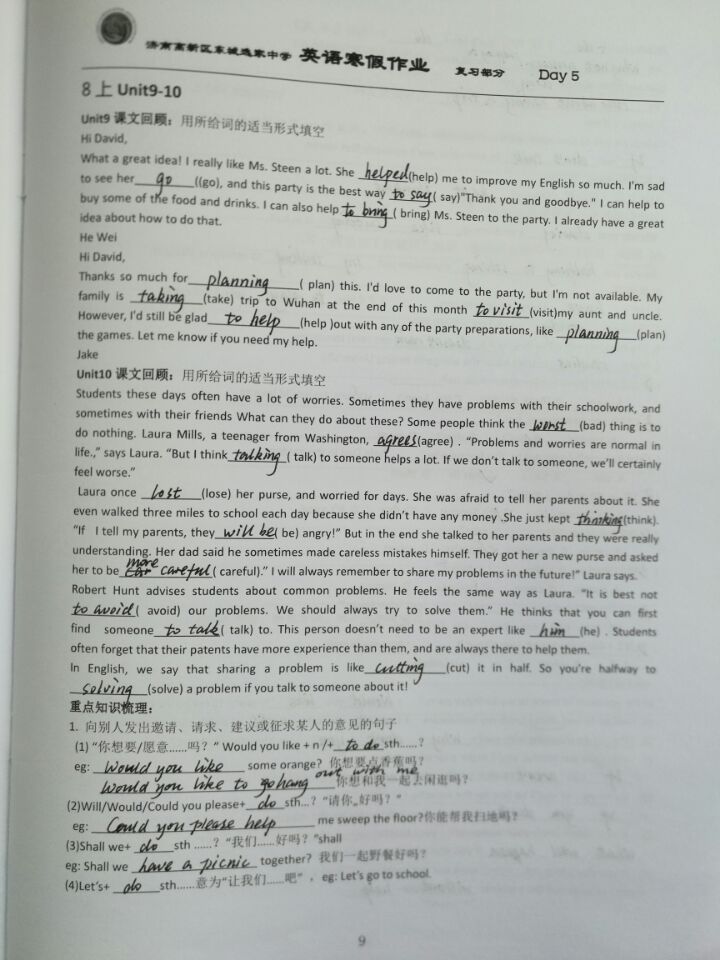 济南高新区东城逸家中学 英语寒假作业 复习部分 Day 5
8上 Unit9-10
Unit9 课文回顾：用所给词的适当形式填空
Hi David,
What a great idea! I really like Ms. Steen a lot. She helped(help) me to improve my English so much. I'm sad
to see her go ((go), and this party is the best way to say( say)"Thank you and goodbye." I can help to
buy some of the food and drinks. I can also help to bring ( bring) Ms. Steen to the party. I already have a great
idea about how to do that.
He Wei
Hi David,
Thanks so much for planning ( plan) this. I'd love to come to the party, but I'm not available. My
family is taking (take) trip to Wuhan at the end of this month to visit (visit)my aunt and uncle.
However, I'd still be glad to help (help )out with any of the party preparations, like planning (plan)
the games. Let me know if you need my help.
Jake
Unit10 课文回顾：用所给词的适当形式填空
Students these days often have a lot of worries. Sometimes they have problems with their schoolwork, and
sometimes with their friends What can they do about these? Some people think the worst (bad) thing is to
do nothing. Laura Mills, a teenager from Washington, agrees(agree) . “Problems and worries are normal in
life.,” says Laura. “But I think talking ( talk) to someone helps a lot. If we don't talk to someone, we'll certainly
feel worse.”
Laura once lost (lose) her purse, and worried for days. She was afraid to tell her parents about it. She
even walked three miles to school each day because she didn't have any money .She just kept thinking(think).
“If I tell my parents, they will be( be) angry!” But in the end she talked to her parents and they were really
understanding. Her dad said he sometimes made careless mistakes himself. They got her a new purse and asked
her to be more careful( careful).” I will always remember to share my problems in the future!” Laura says.
Robert Hunt advises students about common problems. He feels the same way as Laura. “It is best not
to avoid( avoid) our problems. We should always try to solve them.” He thinks that you can first
find someone to talk( talk) to. This person doesn't need to be an expert like him (he) . Students
often forget that their patents have more experience than them, and are always there to help them.
In English, we say that sharing a problem is like cutting (cut) it in half. So you're halfway to
solving (solve) a problem if you talk to someone about it!
重点知识梳理：
1. 向别人发出邀请、请求、建议或征求某人的意见的句子
(1) “你想要/愿意……吗？” Would you like + n /+ to do sth……?
eg: Would you like some orange? 你想要点香蕉吗？
Would you like to go hang out with me 你想和我一起去闲逛吗？
(2)Will/Would/Could you please+ do sth…? “请你..好吗？”
eg: Could you please help me sweep the floor?你能帮我扫地吗？
(3)Shall we+ do sth ……? “我们……好吗？”shall
eg: Shall we have a picnic together? 我们一起野餐好吗？
(4)Let's+ do sth……意为“让我们……吧” ，eg: Let's go to school.
9